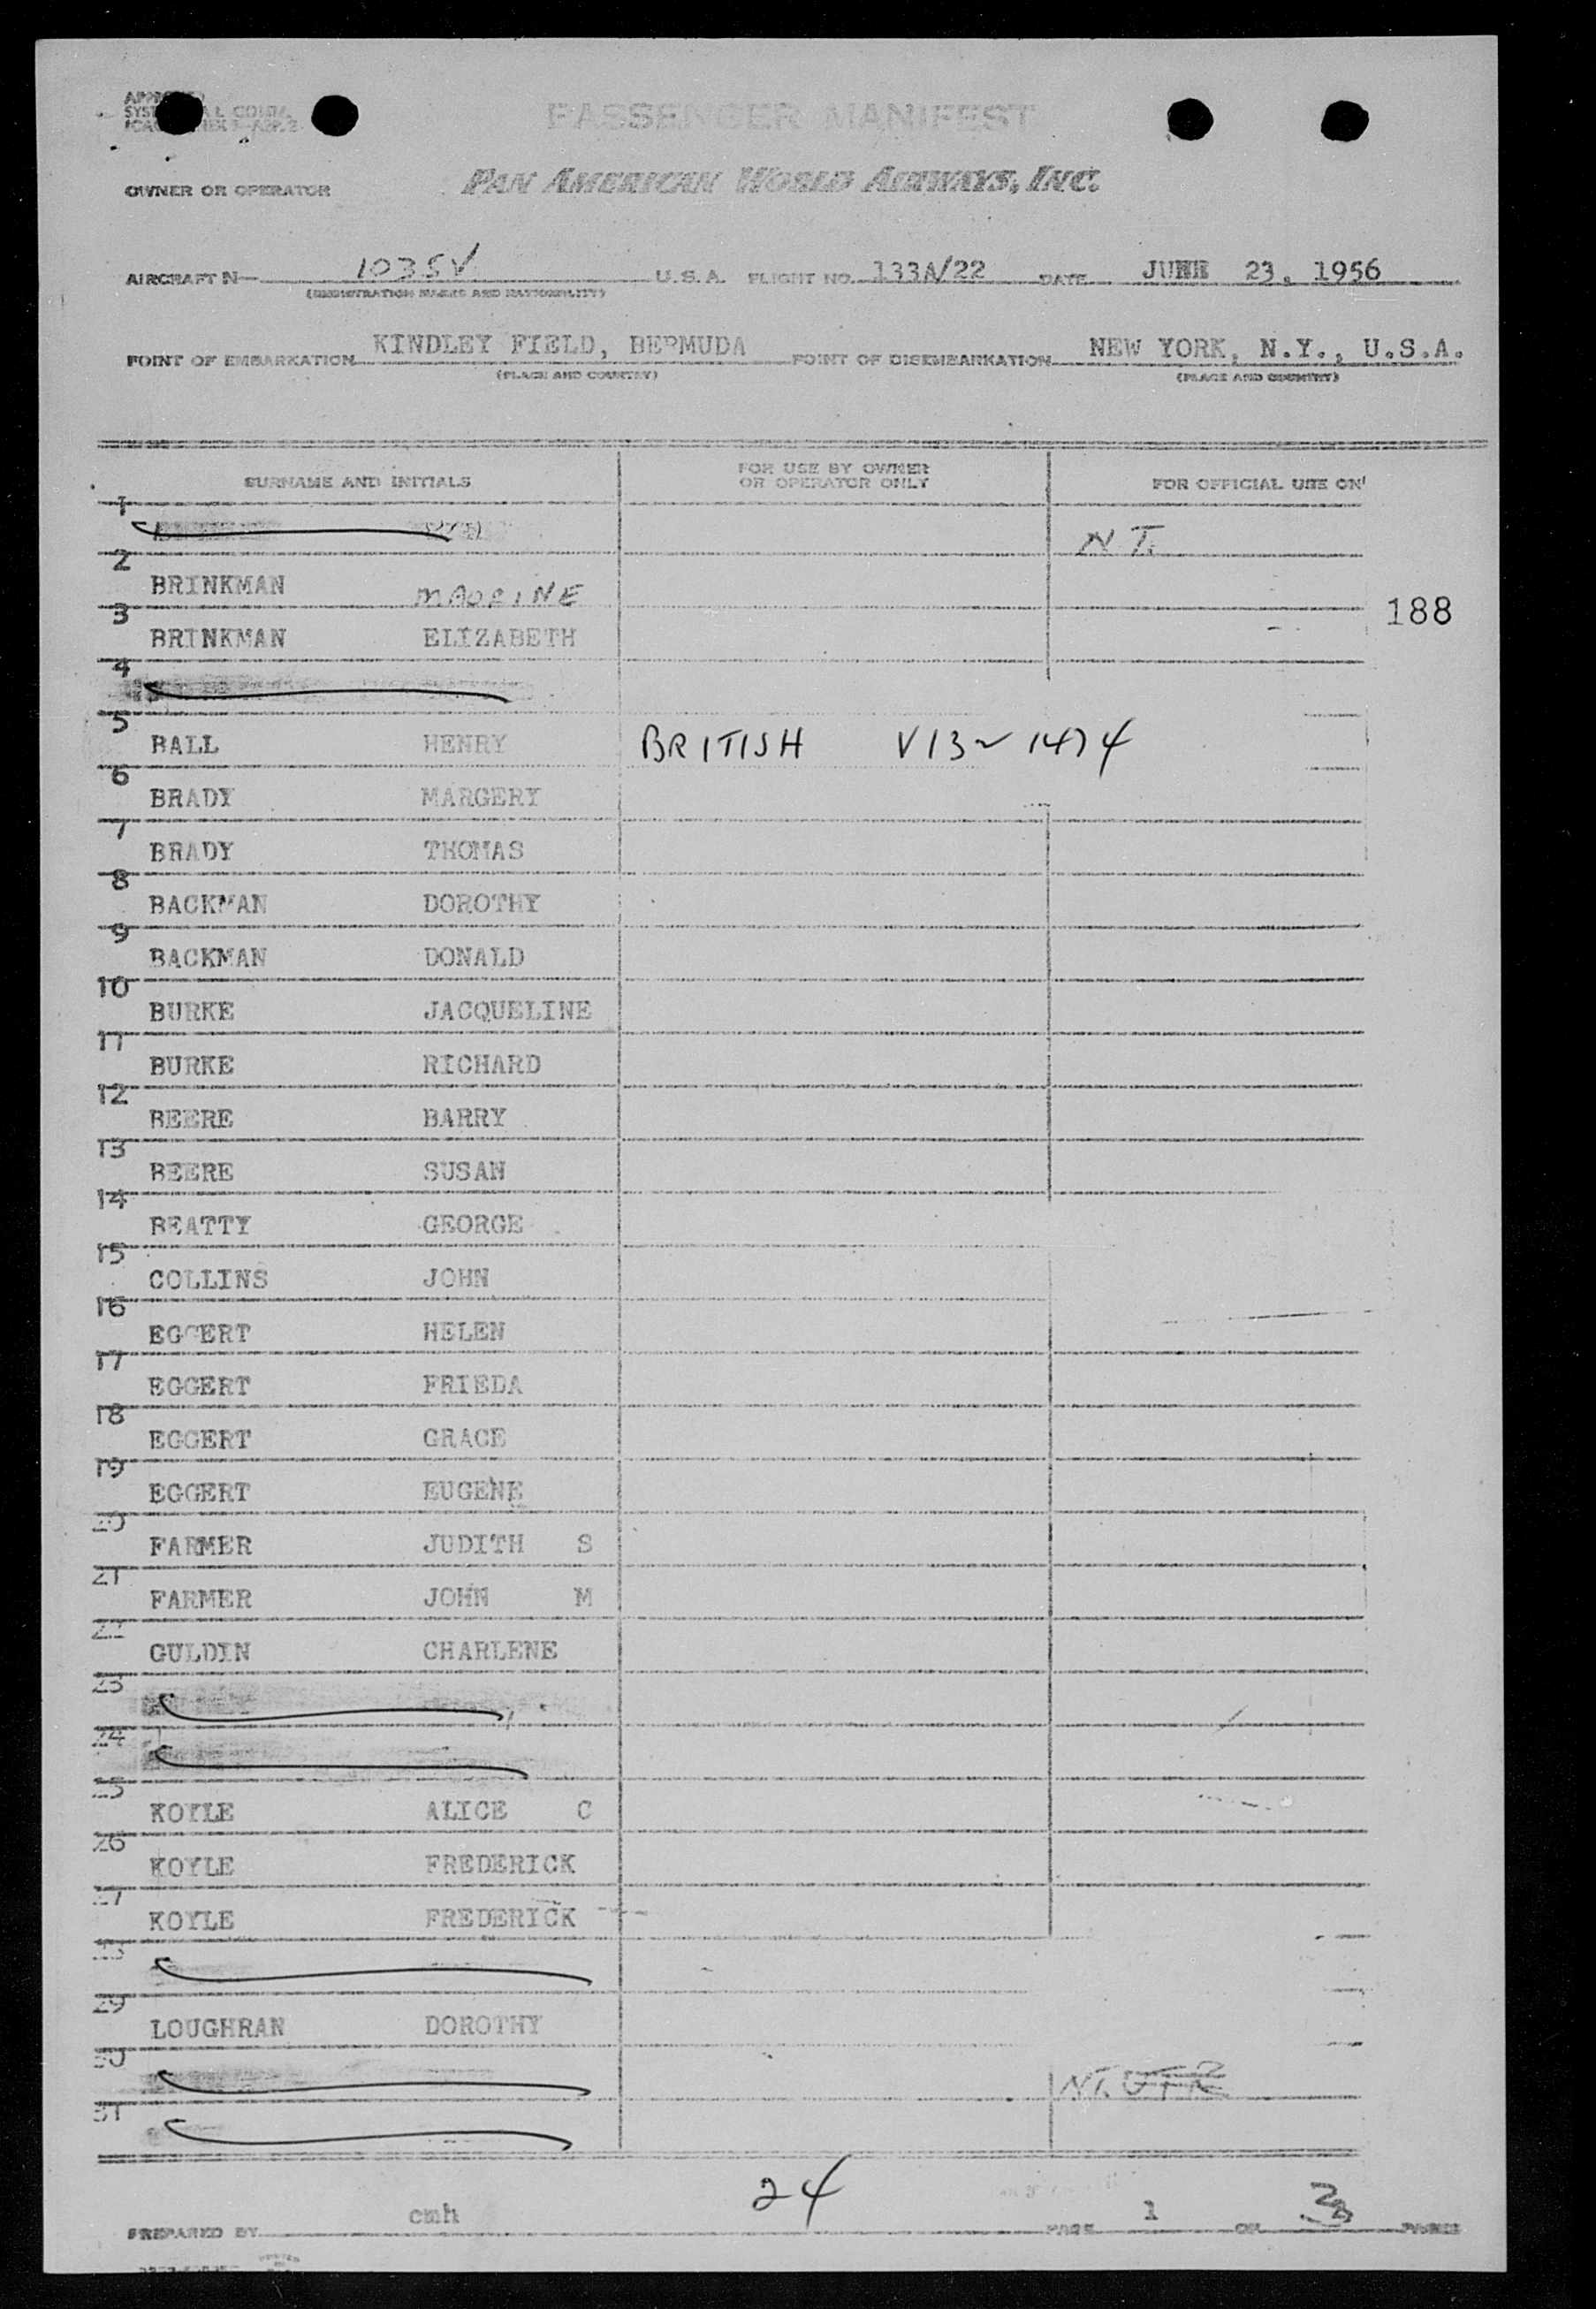 PASSENGER MANIFEST
OWNER OR OPERATOR PAN AMERICAN WORLD AIRWAYS, INC.
AIRCRAFT N 1035V U.S.A. FLIGHT NO. 133A/22 DATE JUNE 23, 1956
(REGISTRATION MARKS AND NATIONALITY)
POINT OF EMBARKATION KINDLEY FIELD, BERMUDA POINT OF DISEMBARKATION NEW YORK, N.Y., U.S.A.
(PLACE AND COUNTRY) (PLACE AND COUNTRY)
SURNAME AND INITIALS FOR USE BY OWNER OR OPERATOR ONLY FOR OFFICIAL USE ON
1 N T.
2 BRINKMAN MAURINE
188
3 BRINKMAN ELIZABETH
4
5 BALL HENRY BRITISH V13~1474
6 BRADY MARGERY
7 BRADY THOMAS
8 BACKMAN DOROTHY
9 BACKMAN DONALD
10 BURKE JACQUELINE
11 BURKE RICHARD
12 BEERE BARRY
13 BEERE SUSAN
14 BEATTY GEORGE
15 COLLINS JOHN
16 EGGERT HELEN
17 EGGERT FRIEDA
18 EGGERT GRACE
19 EGGERT EUGENE
20 FARMER JUDITH S
21 FARMER JOHN M
22 GULDIN CHARLENE
23
24
25 KOYLE ALICE C
26 KOYLE FREDERICK
27 KOYLE FREDERICK
28
29 LOUGHRAN DOROTHY
30 NT.
31
24
PREPARED BY cmh PAGE 1 OF PAGES